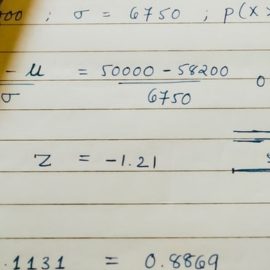 000 ; σ = 6750 ; p(X >
- μ / σ = 50000 - 58200 / 6750
Z = -1.21
.1131 = 0.8869